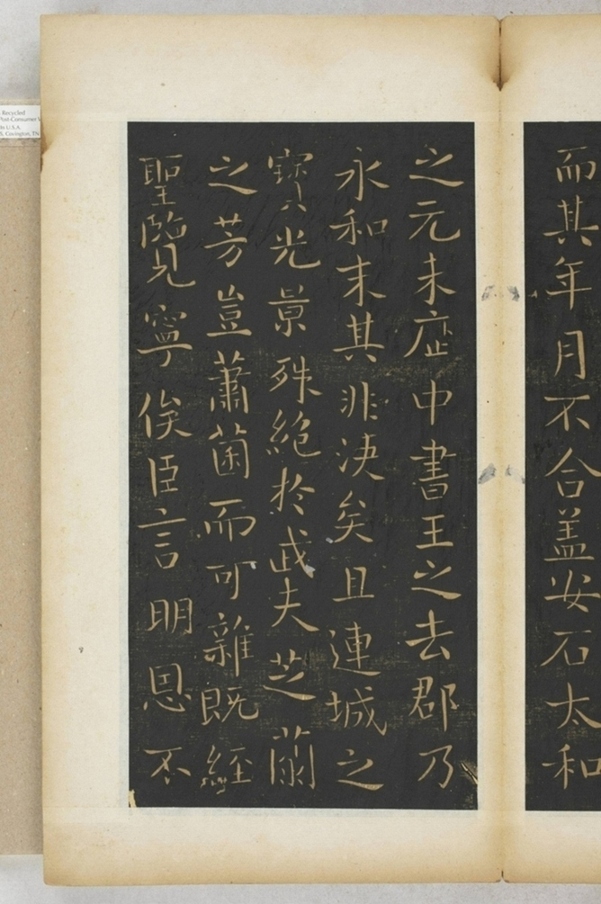 而其年月不合盖安石太和
之元未歷中書王之去郡乃
永和末其非決矣且連城之
寶光景殊絕於武夫芝蘭
之芳豈蕭茵而可雜既經
聖臨見寧俟臣言明恩不
Recycled
Post-Consumer
U.S.A.
Covington, TN